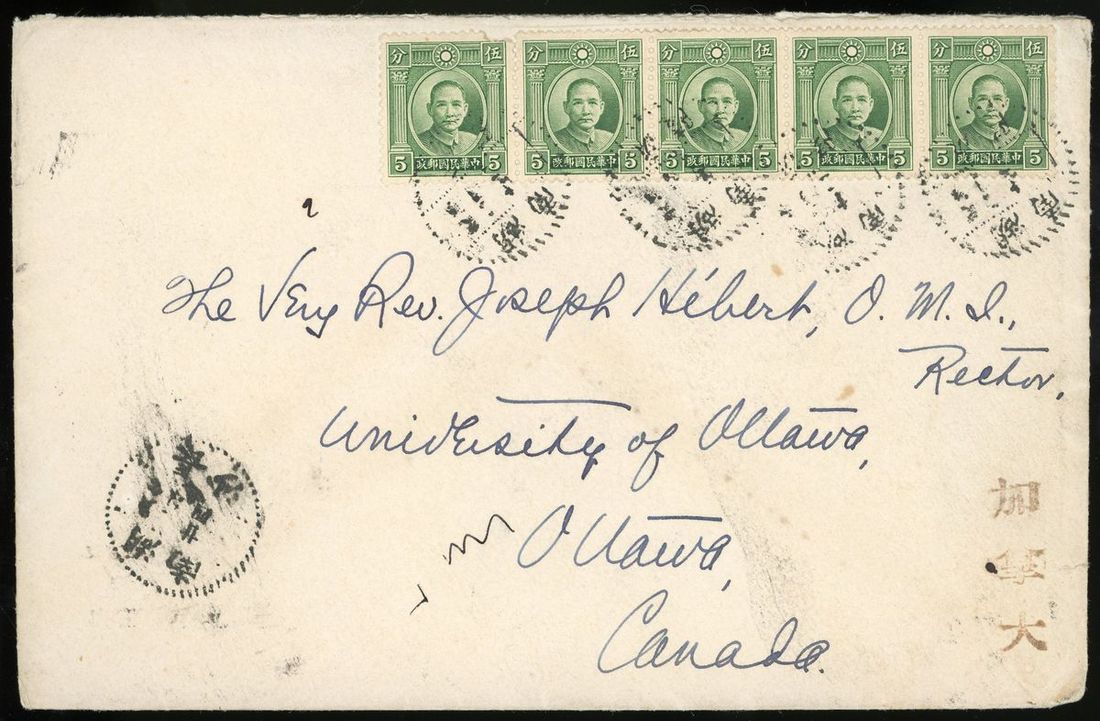 分 伍 分 伍 分 伍 分 伍 分 伍
5 政郵國民華中 5 5 政郵國民華中 5 5 政郵國民華中 5 5 政郵國民華中 5 5 政郵國民華中 5
The Very Rev. Joseph Hébert, O. M. I.,
Rector,
University of Ottawa,
Ottawa,
Canada.
加
拿
大
湖南